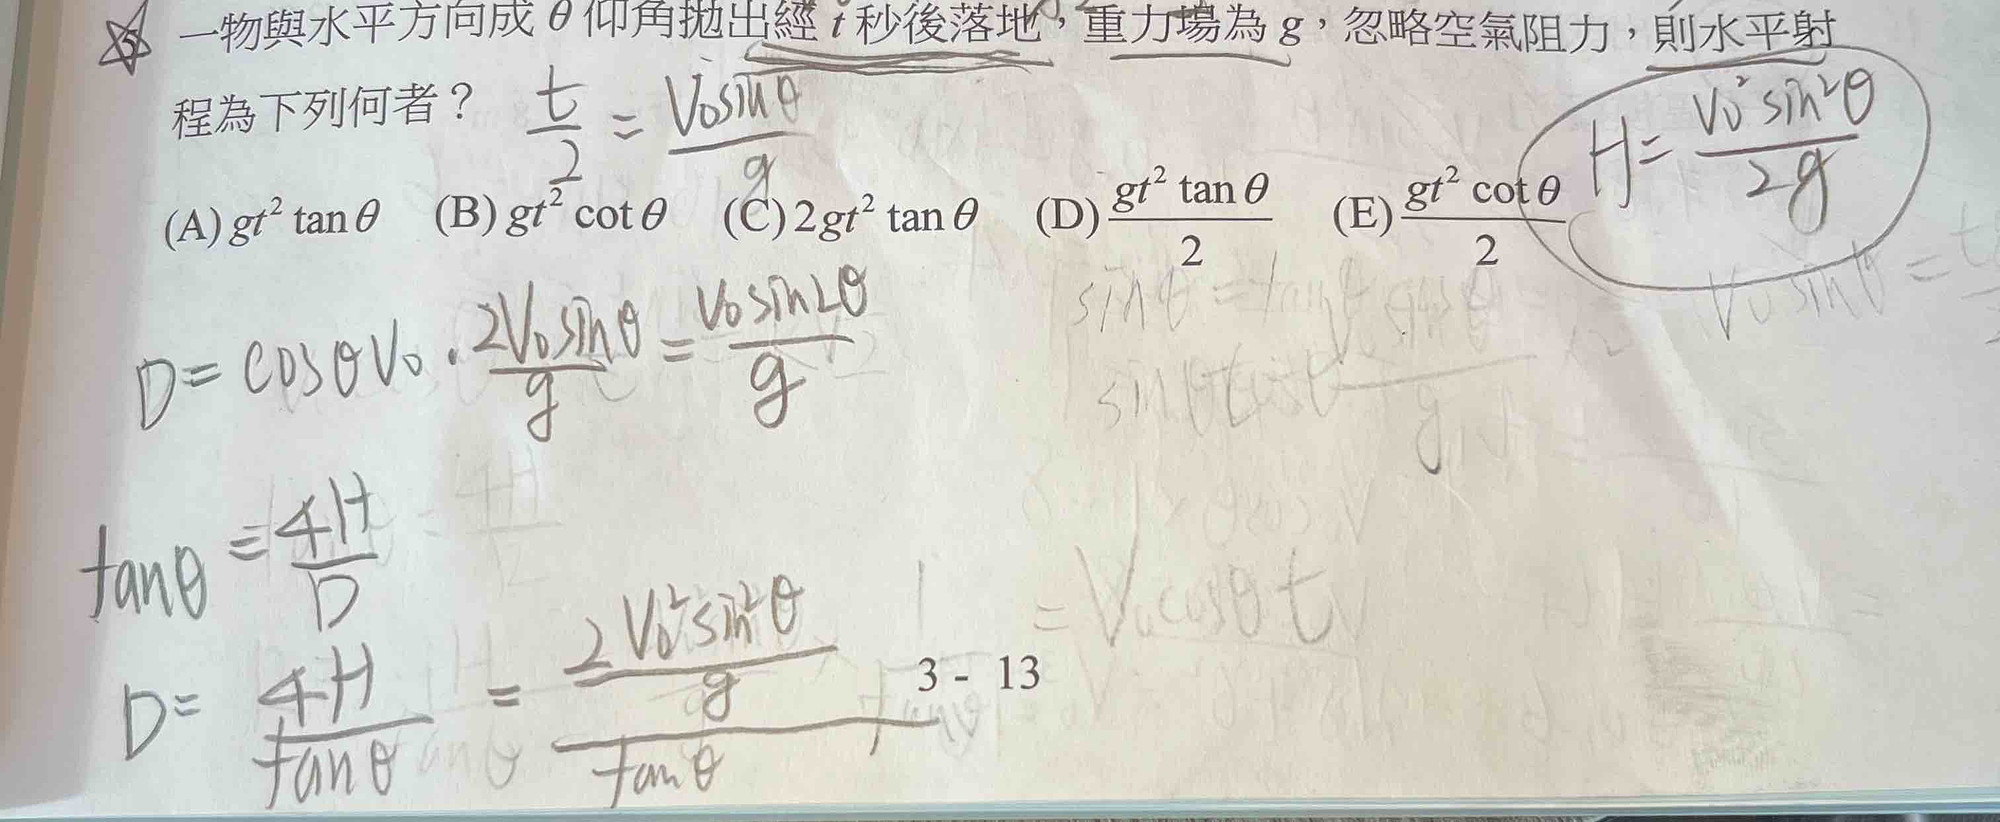 5 一物與水平方向成 θ 仰角拋出經 t 秒後落地，重力場為 g，忽略空氣阻力，則水平射
程為下列何者？ t/2 = V₀sinθ/g
H = V₀²sin²θ/2g
(A) gt² tanθ (B) gt² cotθ (C) 2gt² tanθ (D) gt² tanθ/2 (E) gt² cotθ/2
D = cosθV₀ · 2V₀sinθ/g = V₀sin2θ/g
V₀sinθ =
sinθ = tanθ
tanθ = 4H/D
= V₀cosθ t
D = 4H/tanθ = 2V₀²sin²θ/g/tanθ
3 - 13